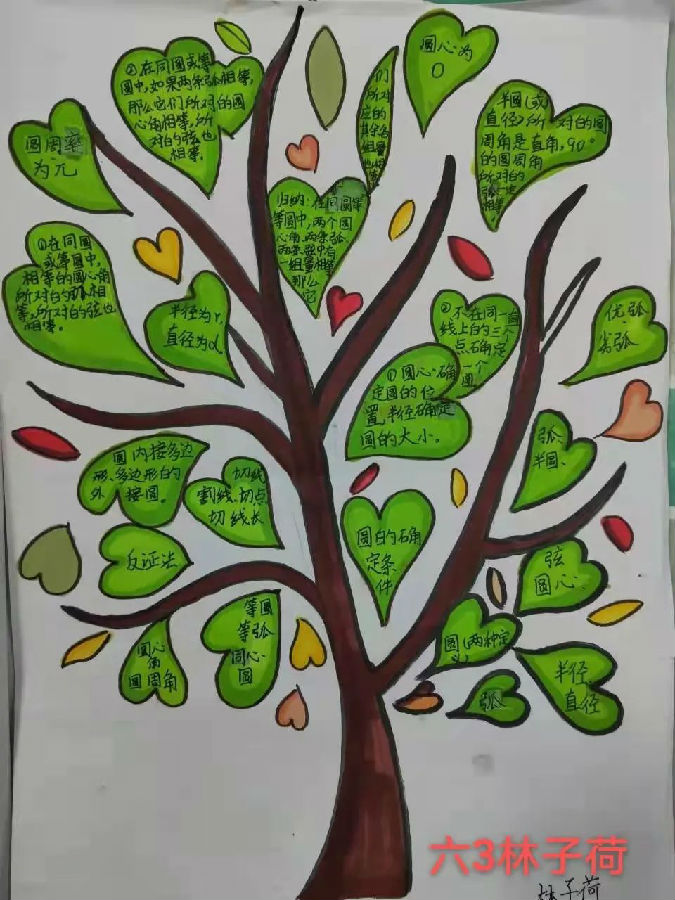 圆心为
O
②在同圆或等
圆中,如果两条弧相等,
那么它们所对的圆
心角相等,所
对的弦也
相等。
们
所对
应的
其余各
组量
也相
等
半圆(或
直径)所对的圆
周角是直角,90°
的圆周角
所对的
弦
圆周率
为π
归纳:在同圆或等
等圆中,两个圆
心角、两条弧、
两条弦中有
一组量相等
那么
它
①在同圆
或等圆中,
相等的圆心角
所对的弧相
等,所对的弦也
相等。
半径为r,
直径为d
②不在同一直
线上的三个
点确定
一个
圆
优弧
劣弧
①圆心确
定圆的位
置,半径确定
圆的大小。
弧、
半圆、
圆内接多边
形、多边形的
外接圆。
切线
割线、切点
切线长
圆的确
定条
件
反证法
弦
圆心、
等圆
等弧
同心
圆
圆心
角
圆周角
圆(两种定
义)
半径、
直径
弧
六3林子荷
林子荷